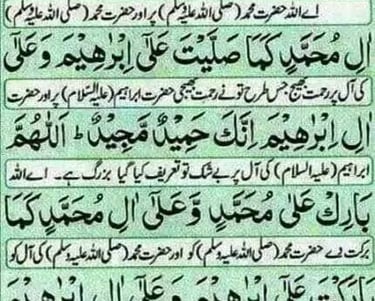 اے اللہ حضرت محمد (صلی اللہ علیہ وسلم) پر اور حضرت محمد (صلی اللہ علیہ وسلم)
اٰلِ مُحَمَّدٍ كَمَا صَلَّيْتَ عَلٰى اِبْرٰهِيْمَ وَعَلٰى
کی آل پر رحمت بھیج جس طرح تو نے رحمت بھیجی حضرت ابراہیم (علیہ السلام) پر اور حضرت
اٰلِ اِبْرٰهِيْمَ اِنَّكَ حَمِيْدٌ مَّجِيْدٌ ط اَللّٰهُمَّ
ابراہیم (علیہ السلام) کی آل پر بے شک تو تعریف کیا گیا بزرگ ہے۔ اے اللہ
بَارِكْ عَلٰى مُحَمَّدٍ وَّعَلٰى اٰلِ مُحَمَّدٍ كَمَا
برکت دے حضرت محمد (صلی اللہ علیہ وسلم) کو اور حضرت محمد (صلی اللہ علیہ وسلم) کی آل کو
بَارَكْتَ عَلٰى اِبْرٰهِيْمَ وَعَلٰى اٰلِ اِبْرٰهِيْمَ